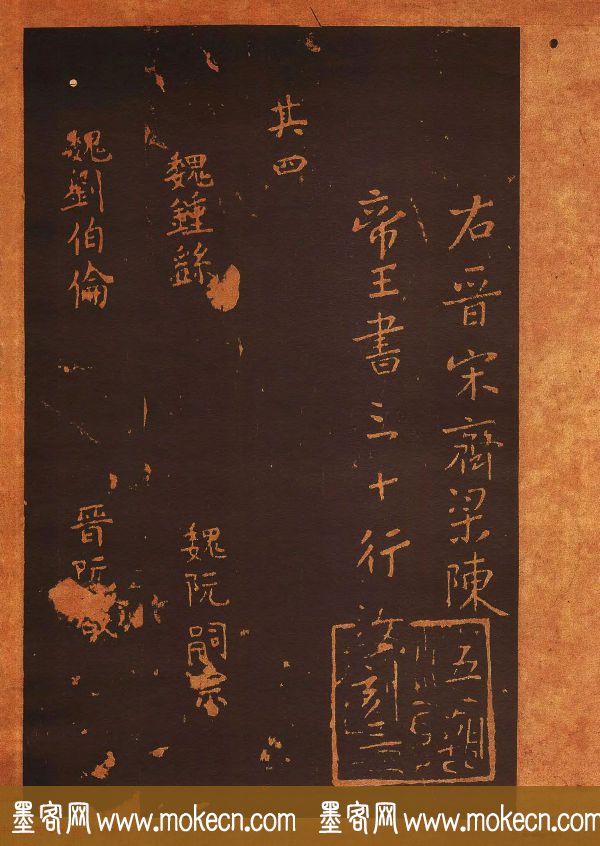 右晋宋齊梁陳
帝王書三十行
其四
魏鍾繇
魏阮嗣宗
魏劉伯倫
晋阮
墨客网 www.mokecn.com 墨客网 www.mokecn.com